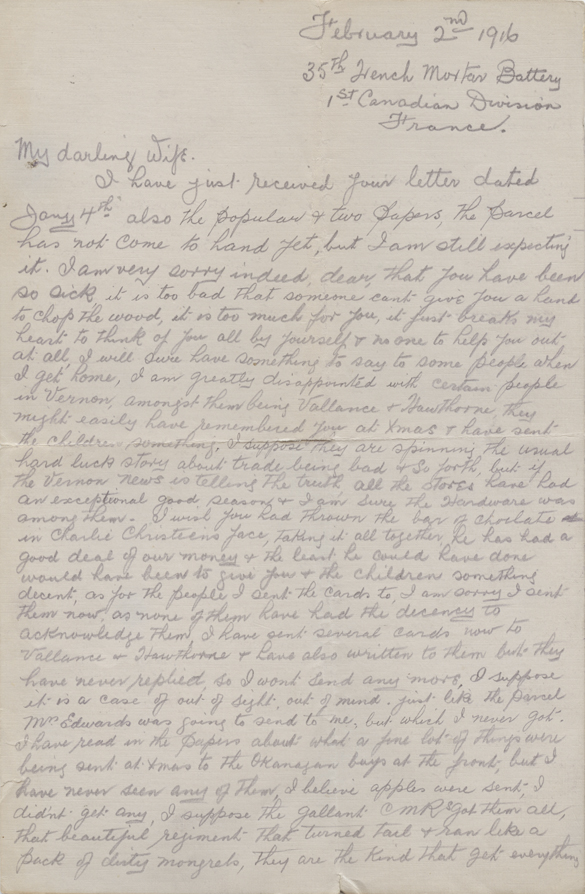 February 2nd 1916
35th Trench Mortar Battery
1st Canadian Division
France.
My darling Wife.
I have just received your letter dated
Jany 4th also the popular & two papers, the parcel
has not come to hand yet, but I am still expecting
it. I am very sorry indeed, dear, that you have been
so sick, it is too bad that someone cant give you a hand
to chop the wood, it is too much for you, it just breaks my
heart to think of you all by yourself & no one to help you out
at all, I will sure have something to say to some people when
I get home, I am greatly disappointed with certain people
in Vernon, amongst them being Vallance & Hawthorne, they
might easily have remembered you at Xmas & have sent
the children something, I suppose they are spinning the usual
hard luck story about trade being bad & so forth, but if
the Vernon News is telling the truth, all the stores have had
an exceptional good season & I am sure the Hardware was
among them. I wish you had thrown the bar of choclate
in Charlie Christiens face, taking it all together, he has had a
good deal of our money & the least he could have done
would have been to give you & the children something
decent, as for the people I sent the cards to, I am sorry I sent
them now, as none of them have had the decency to
acknowledge them, I have sent several cards now to
Vallance & Hawthorne & have also written to them but they
have never replied, so I wont send any more, I suppose
it is a case of out of sight, out of mind. just like the parcel
Mrs Edwards was going to send to me, but which I never got.
I have read in the papers about what a fine lot of things were
being sent at Xmas to the Okanagan boys at the front, but I
have never seen any of them, I believe apples were sent, I
didnt get any, I suppose the gallant CMR got them all,
that beautiful regiment that turned tail & ran like a
pack of dirty mongrels, they are the kind that get everything